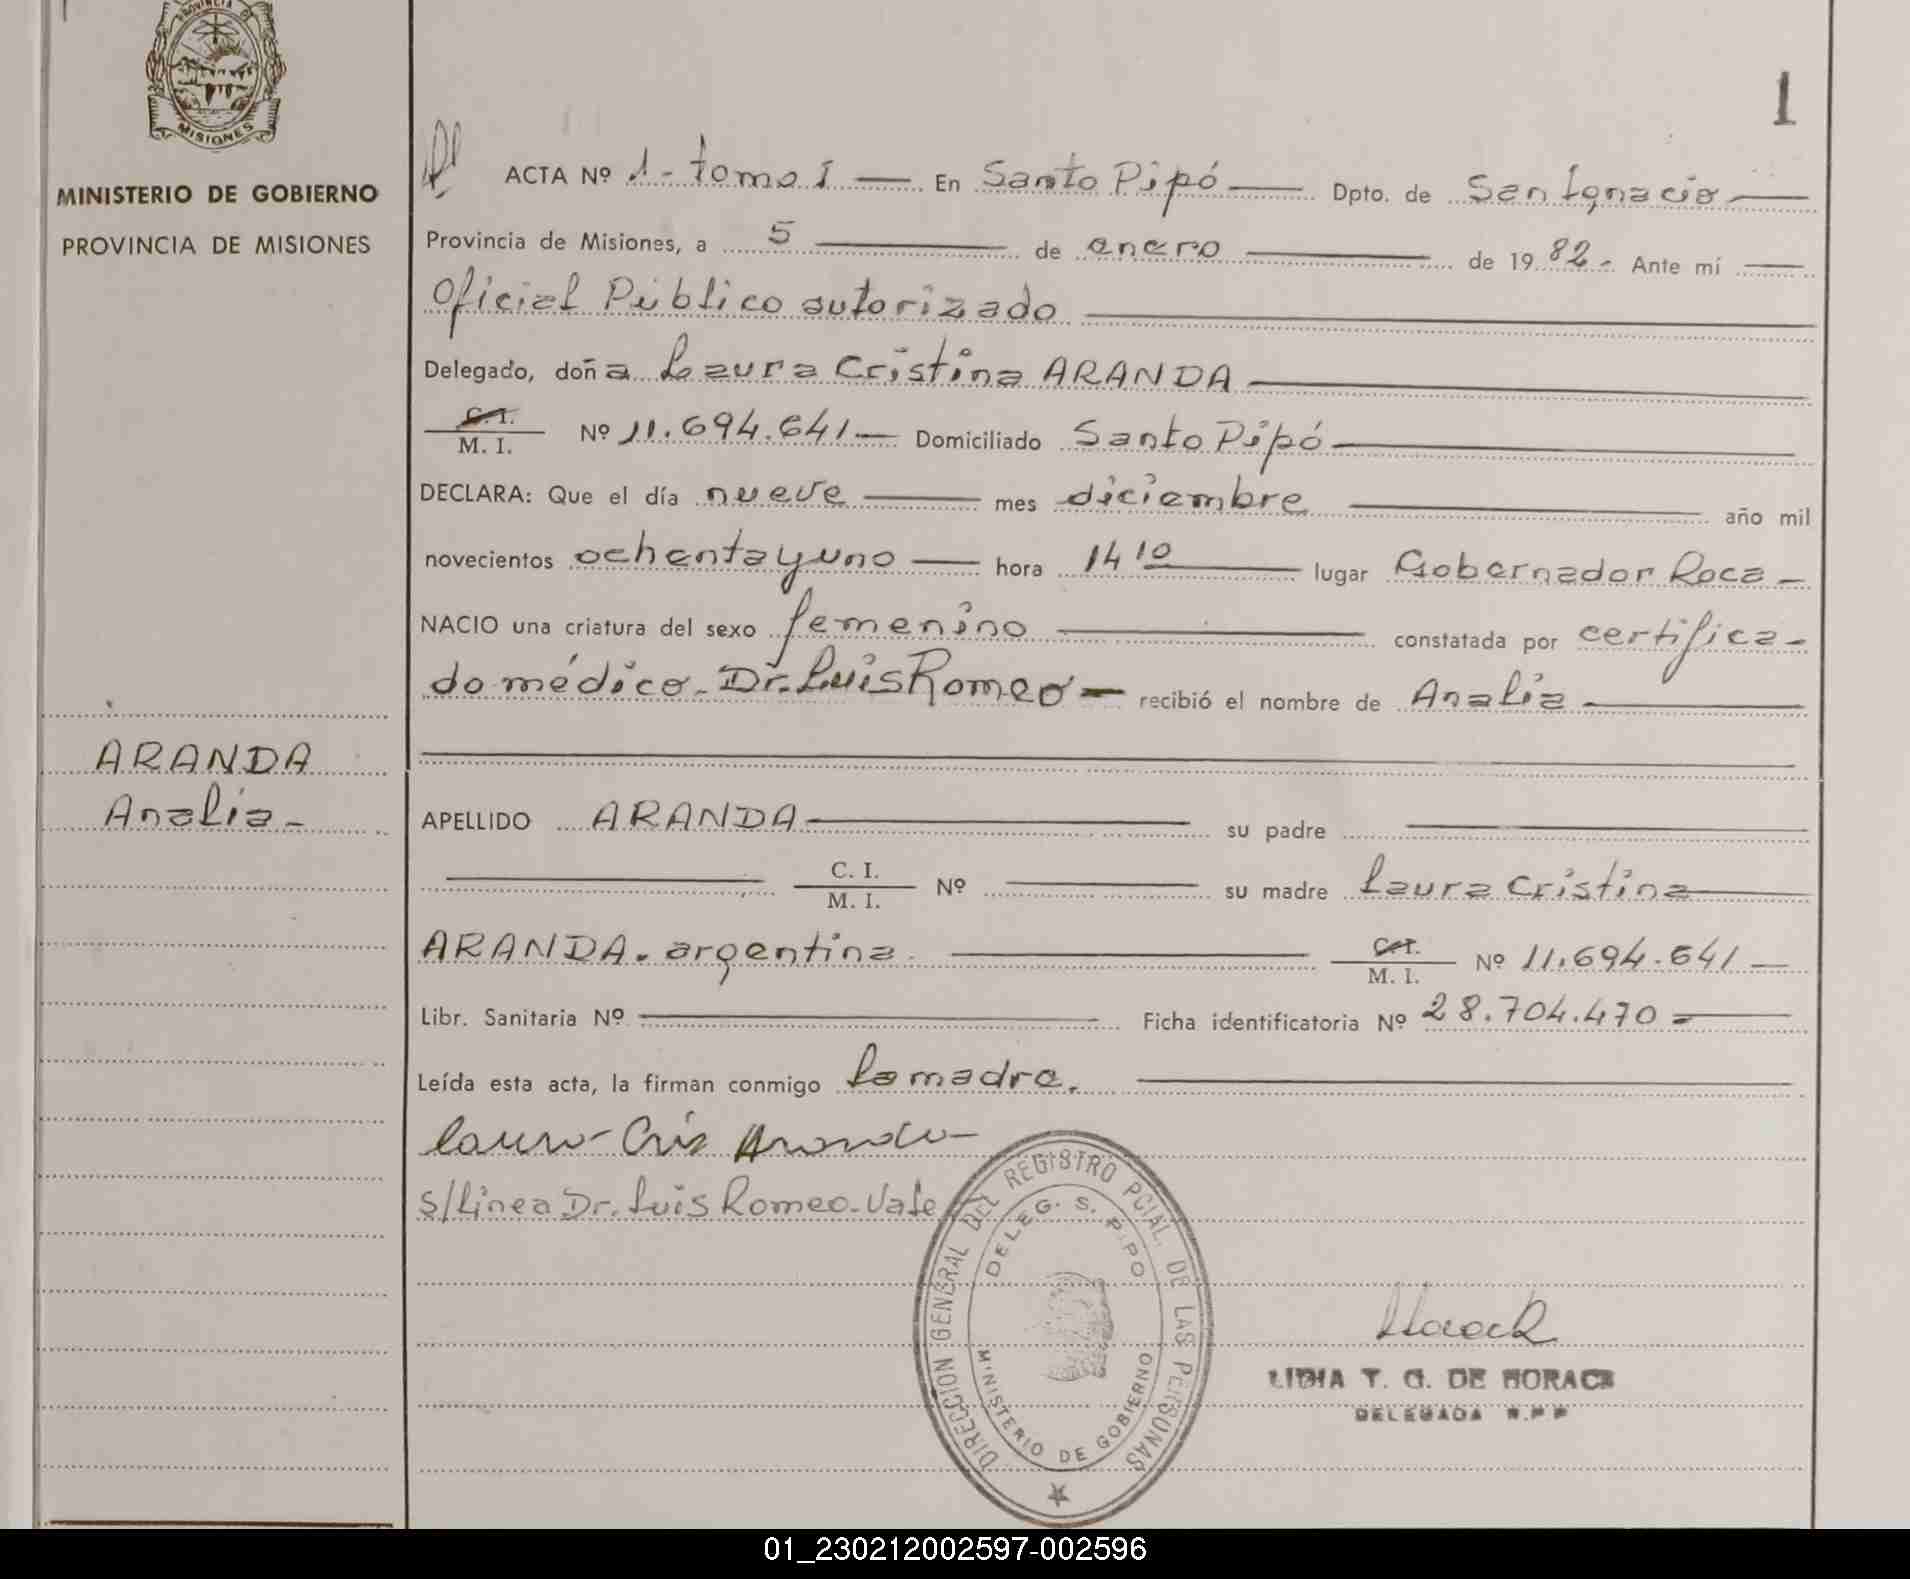 PROVINCIA DE
MISIONES
MINISTERIO DE GOBIERNO
PROVINCIA DE MISIONES
ARANDA
Analía -
1
ACTA Nº 1 - tomo I — En Santo Pipó — Dpto. de San Ignacio —
Provincia de Misiones, a 5 — de enero — de 19 82 - Ante mí —
Oficial Público autorizado —
Delegado, doña Laura Cristina ARANDA —
C. I.
M. I. Nº 11.694.641 — Domiciliado Santo Pipó —
DECLARA: Que el día nueve — mes diciembre — año mil
novecientos ochenta y uno — hora 14 10 — lugar Gobernador Roca -
NACIO una criatura del sexo femenino — constatada por certifica-
do médico - Dr. Luis Romeo — recibió el nombre de Analía —
APELLIDO ARANDA — su padre —
— C. I.
M. I. Nº — su madre Laura Cristina —
ARANDA. argentina — C. I.
M. I. Nº 11.694.641 —
Libr. Sanitaria Nº — Ficha identificatoria Nº 28.704.470 —
Leída esta acta, la firman conmigo la madre. —
Laura Cris Aranda -
s/línea Dr. Luis Romeo - Vale
DIRECCION GENERAL DEL REGISTRO PCIAL. DE LAS PERSONAS
DELEG. S. PIPO
MINISTERIO DE GOBIERNO
LIDIA T. G. DE HORACK
DELEGADA R.P.P
01_230212002597-002596